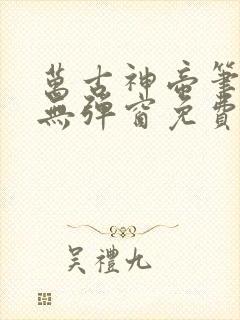 萬古神帝筆
無彈窗免費
吳禮九